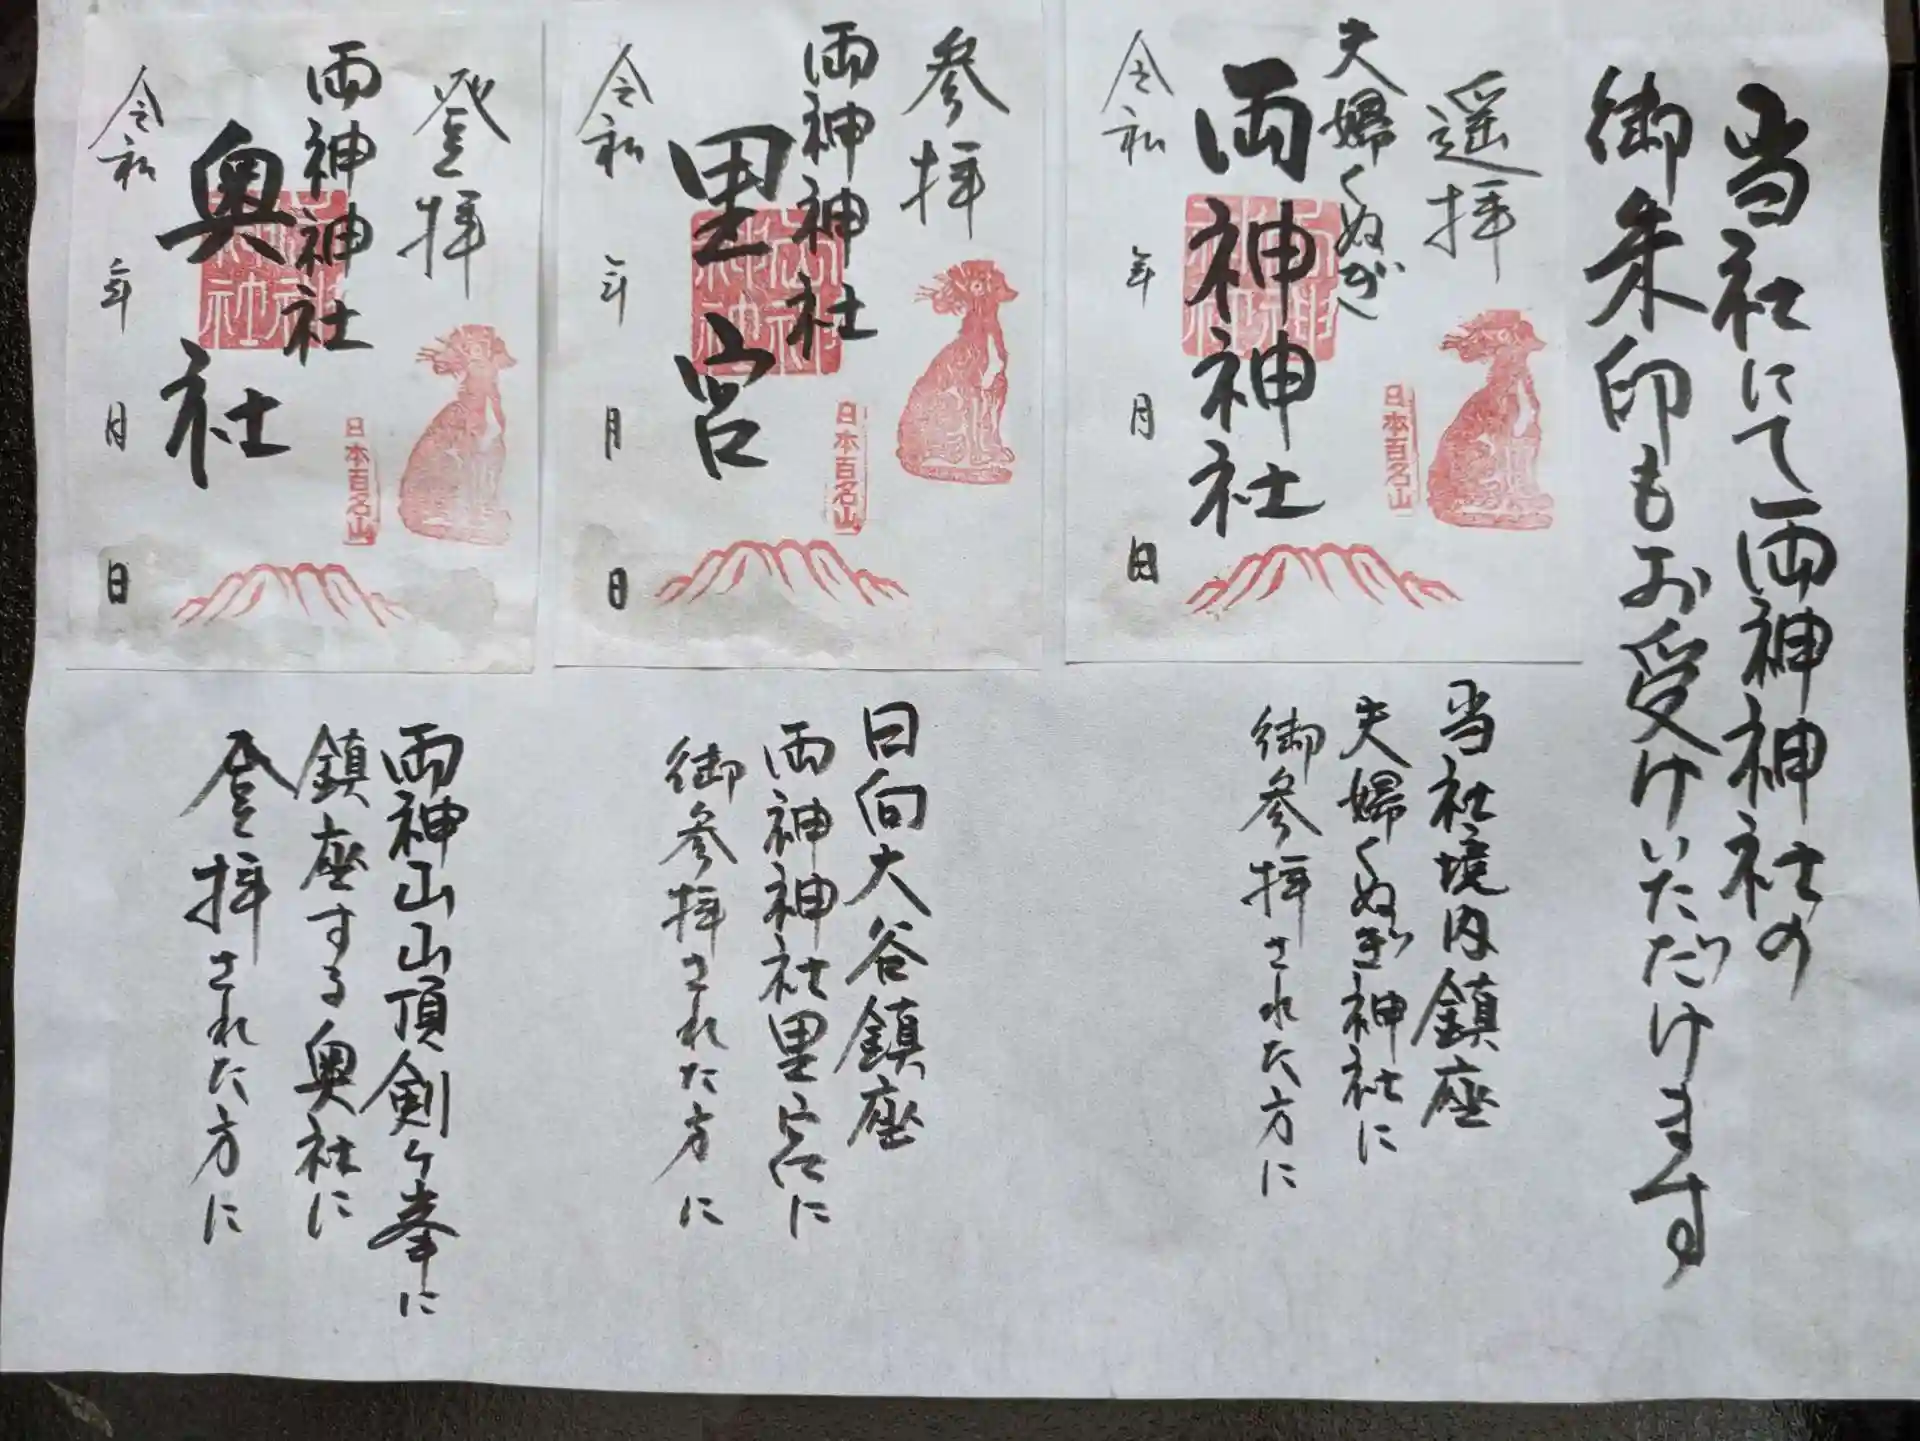 当社にて両神神社の
御朱印もお受けいただけます
遥拝
夫婦くぬぎ
両神神社
令和 年 月 日
日本百名山
当社境内鎮座
夫婦くぬぎ神社に
御参拝された方に
参拝
両神神社
里宮
令和 年 月 日
日本百名山
日向大谷鎮座
両神神社里宮に
御参拝された方に
登拝
両神神社
奥社
令和 年 月 日
日本百名山
両神山山頂剣ヶ峯に
鎮座する奥社に
登拝された方に